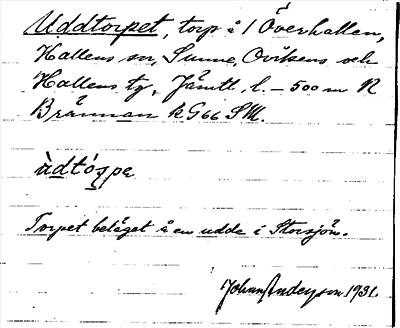 Uddtorpet, torp å 1 Överhallen,
Hallens sn, Sunne, Ovikens och
Hallens tg, Jämtl. l. – 500 m N
Brännan k G66 SM.
ùdtórpe
Torpet beläget å en udde i Storsjön.
Johan Anderson 1931.